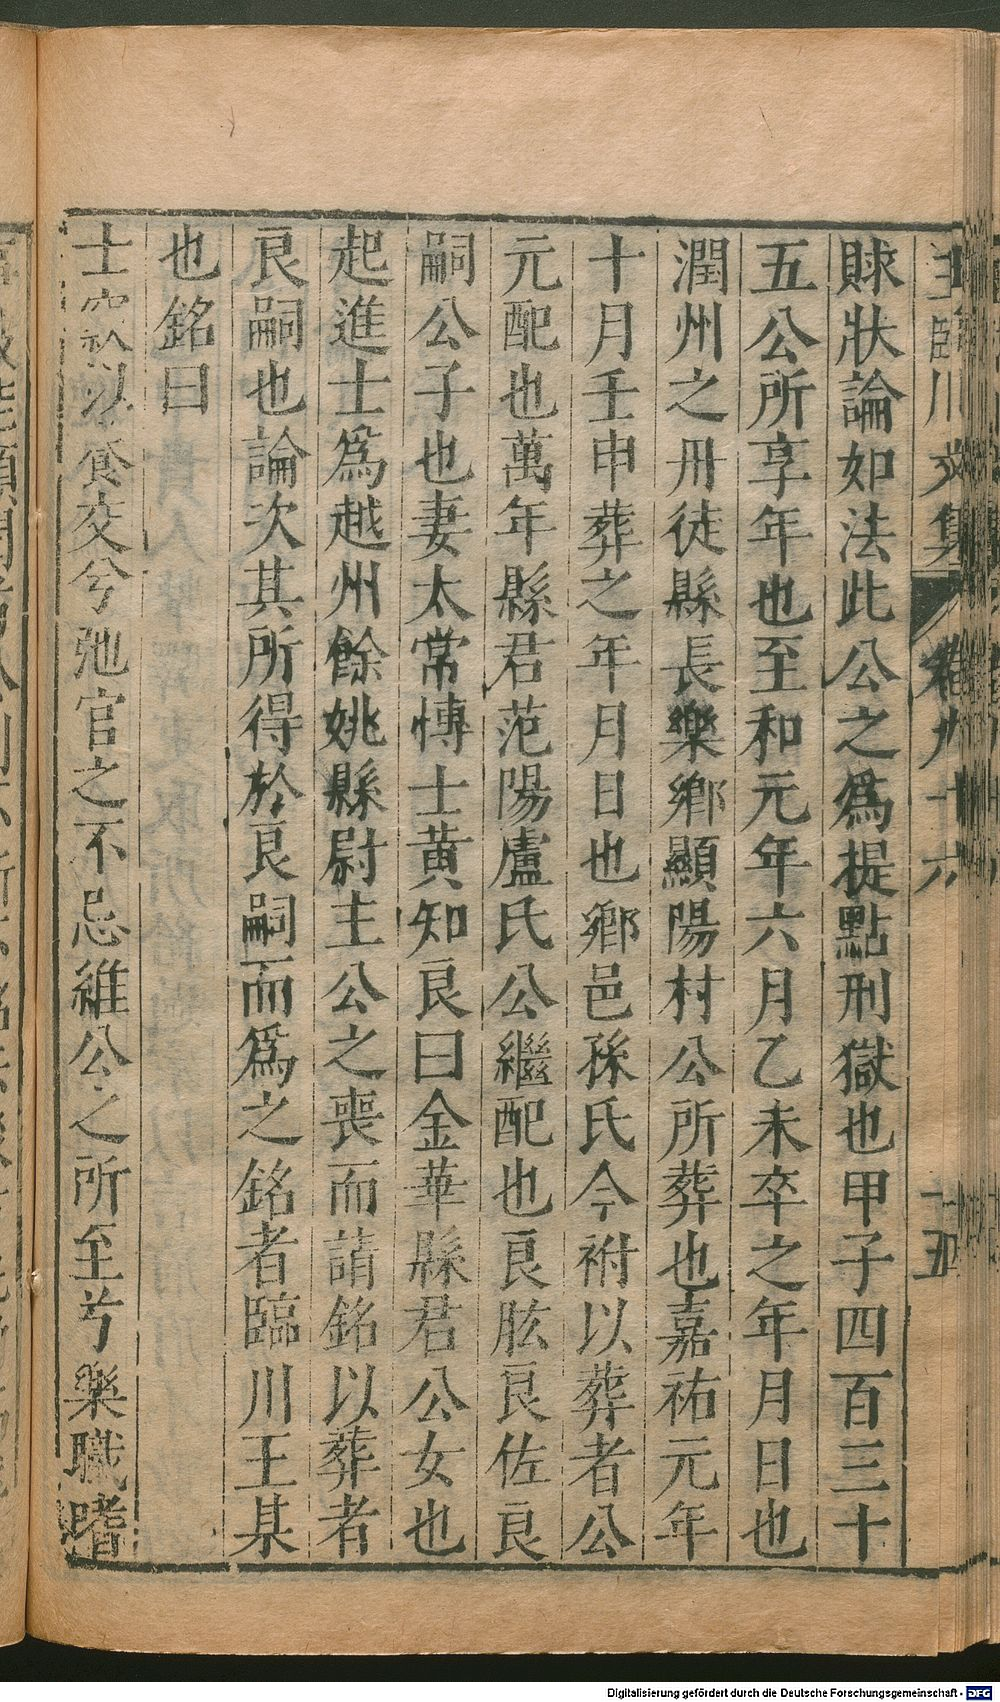 王臨川文集 卷九十六 十五
賕狀論如法此公之爲提點刑獄也甲子四百三十
五公所享年也至和元年六月乙未卒之年月日也
潤州之丹徒縣長樂鄉顯陽村公所葬也嘉祐元年
十月壬申葬之年月日也鄉邑孫氏今祔以葬者公
元配也萬年縣君范陽盧氏公繼配也良肱良佐良
嗣公子也妻太常愽士黃知良曰金華縣君公女也
起進士爲越州餘姚縣尉主公之喪而請銘以葬者
良嗣也論次其所得於良嗣而爲之銘者臨川王某
也銘曰
士窾以養交兮弛官之不忌維公之所至兮樂職嗜
Digitalisierung gefördert durch die Deutsche Forschungsgemeinschaft - DFG